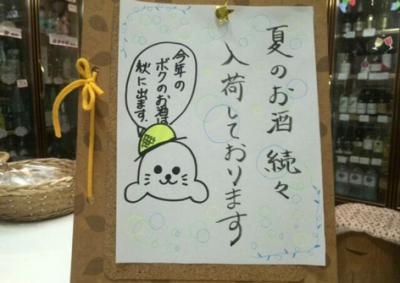 夏のお酒 続々
入荷しております
今年の
ボクのお酒は
秋に出ます.